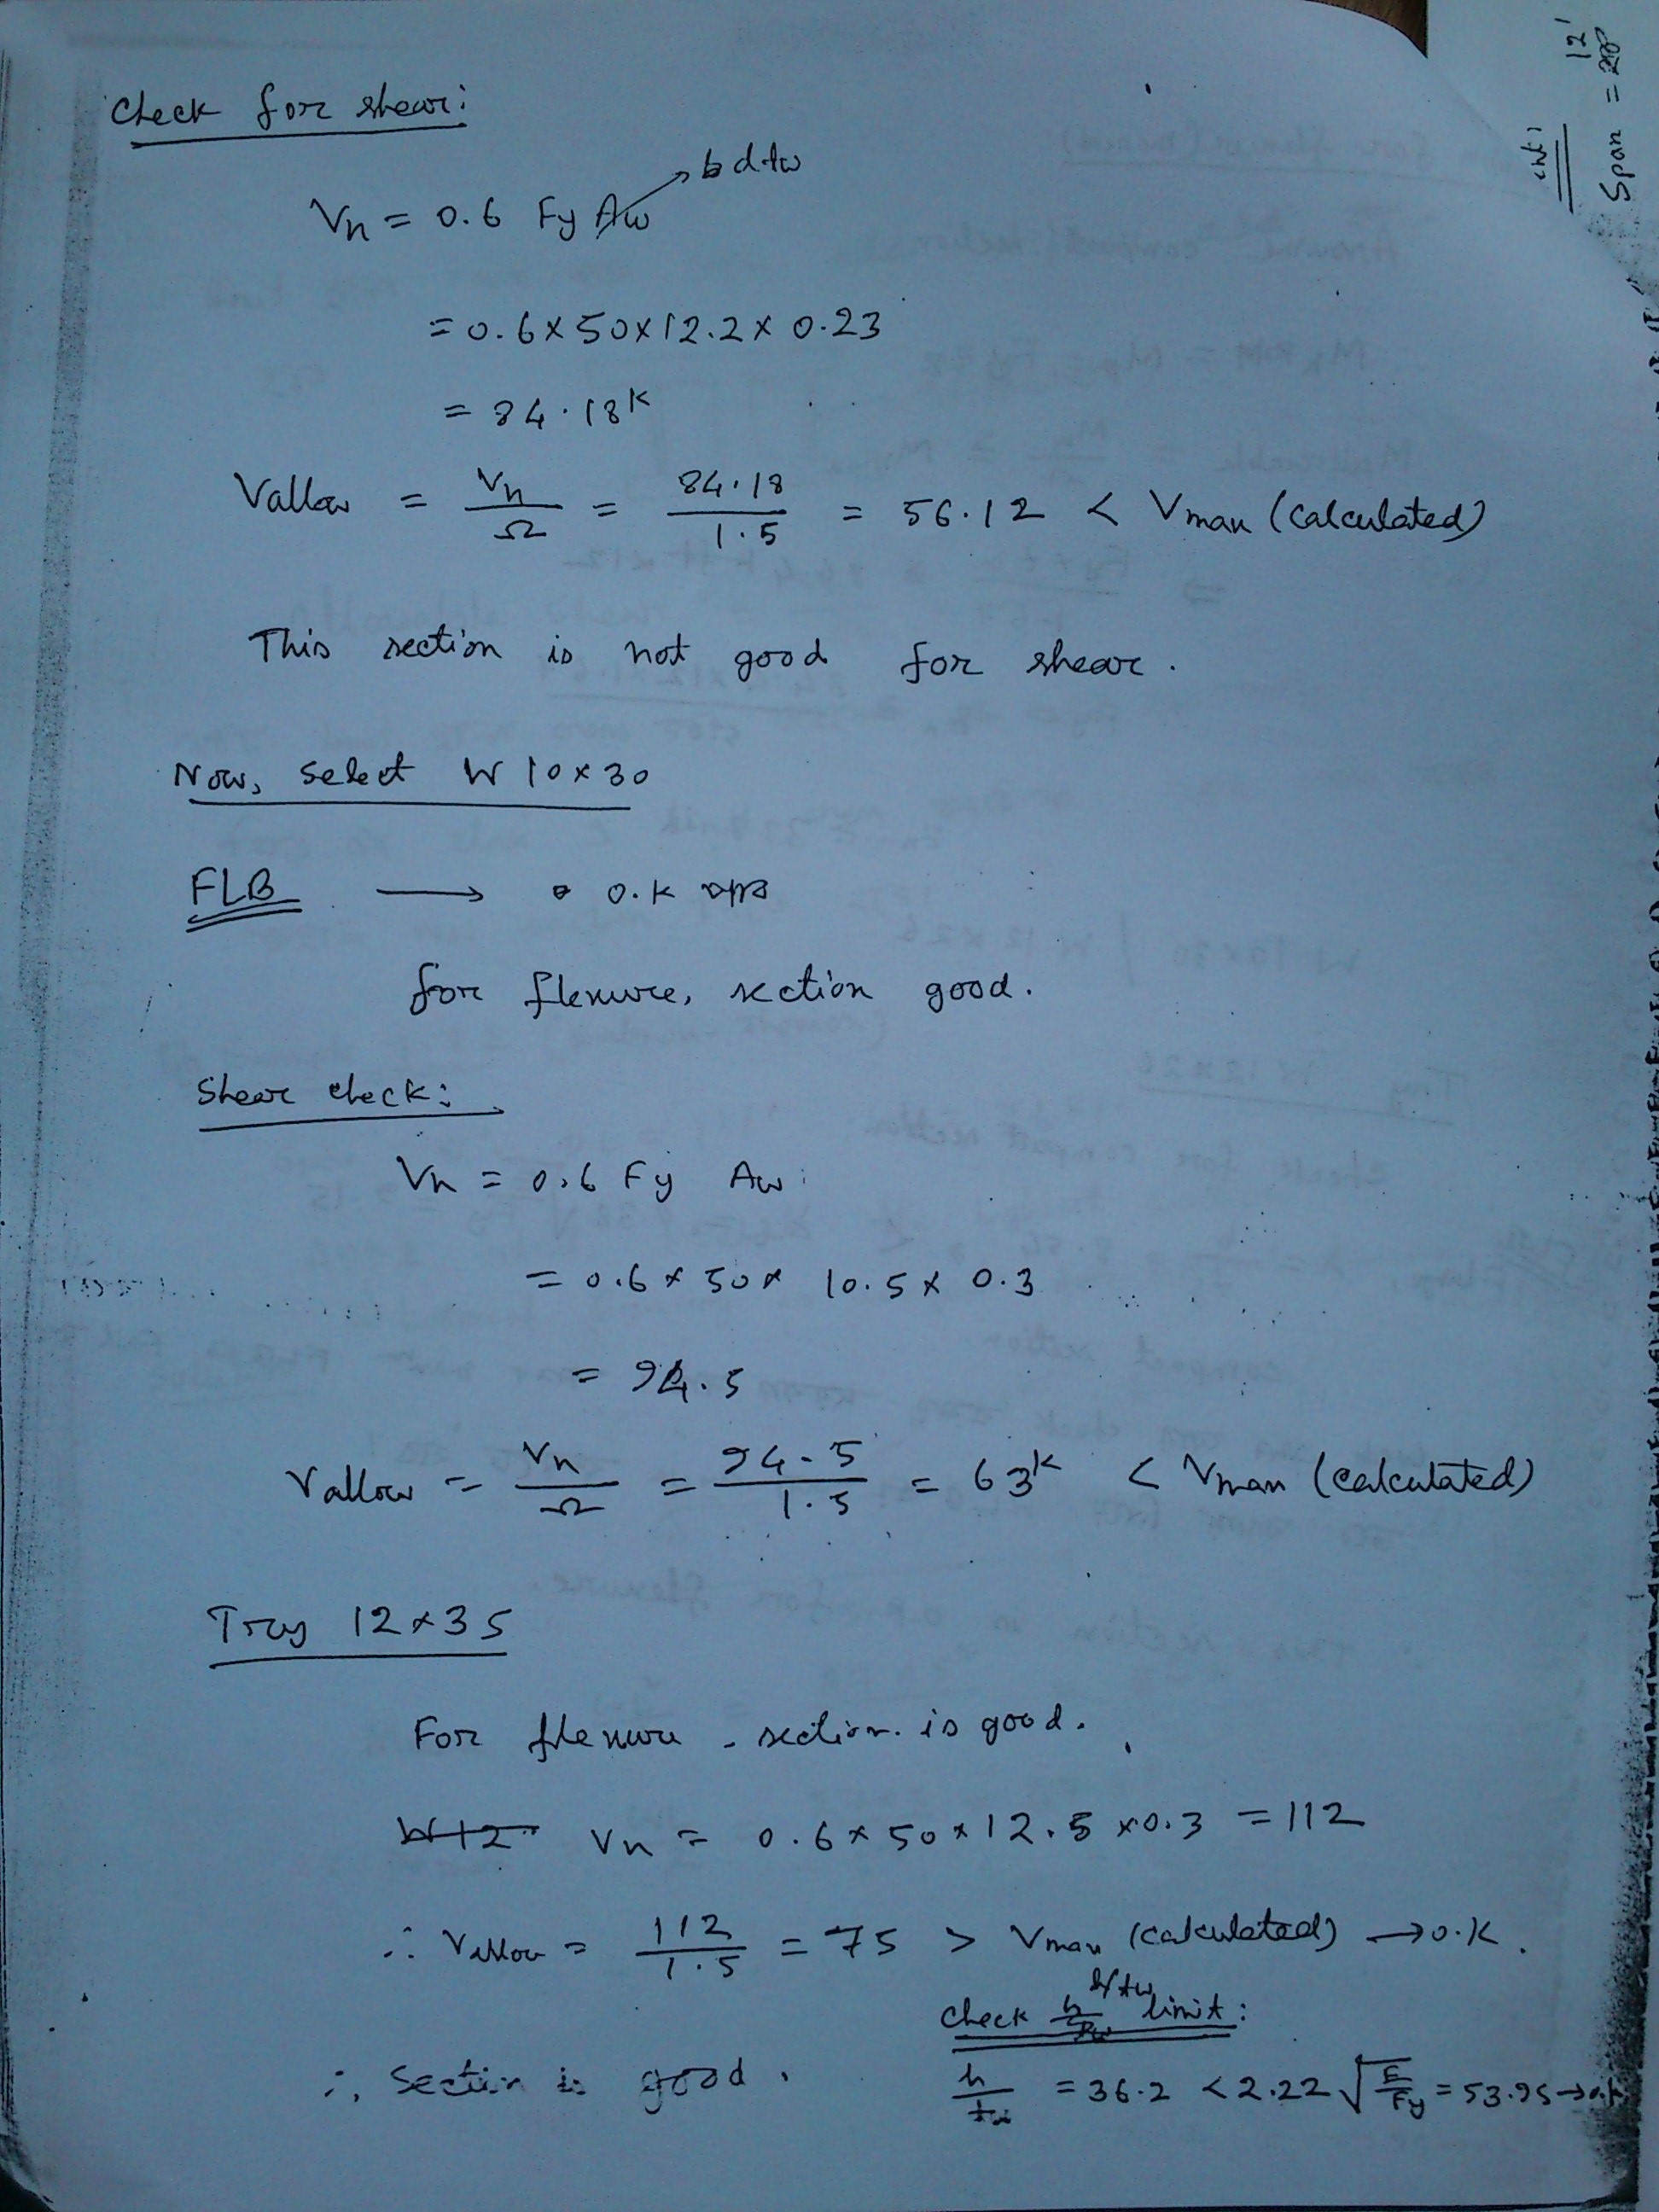 Check for shear:
Vn = 0.6 Fy Aw → d tw
= 0.6 x 50 x 12.2 x 0.23
= 84.18 k
Vallow = Vn/Ω = 84.18/1.5 = 56.12 < Vmax (calculated)
This section is not good for shear.
Now, select W 10 x 30
FLB → o.k
for flexure, section good.
Shear check:
Vn = 0.6 Fy Aw
= 0.6 x 50 x 10.5 x 0.3
= 94.5
Vallow = Vn/Ω = 94.5/1.5 = 63 k < Vmax (calculated)
Try 12 x 35
For flexure, section is good.
W12 Vn = 0.6 x 50 x 12.5 x 0.3 = 112
∴ Vallow = 112/1.5 = 75 > Vmax (calculated) → o.k.
∴ Section is good.
Check h/tw limit:
h/tw = 36.2 < 2.22 √E/Fy = 53.95 → o.k.
Span =
12'